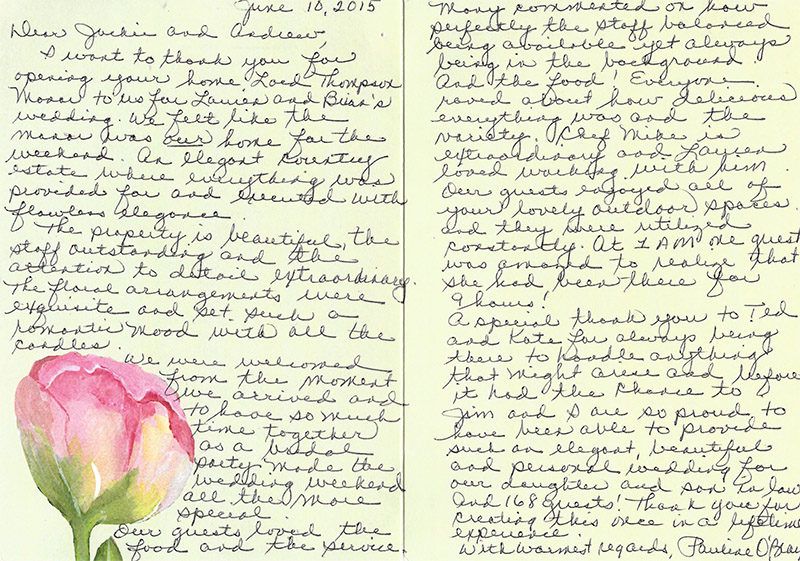 June 10, 2015
Dear Jackie and Andrew,
I want to thank you for
opening your home, Lord Thompson
Manor to us for Lauren and Brian's
wedding. We felt like the
manor was our home for the
weekend. An elegant country
estate where everything was
provided for and executed with
flawless elegance.
The property is beautiful, the
staff outstanding and the
attention to detail extraordinary.
The floral arrangements were
exquisite and set such a
romantic mood with all the
candles.
We were welcomed
from the moment
we arrived and
to have so much
time together
as a bridal
party made the
wedding weekend
all the more
special.
Our guests loved the
food and the service.
Many commented on how
perfectly the staff balanced
being available yet always
being in the background.
And the food! Everyone
raved about how delicious
everything was and the
variety. Chef Mike is
extraordinary and Lauren
loved working with him.
Our guests enjoyed all of
your lovely outdoor spaces
and they were utilized
constantly. At 1 AM one guest
was amazed to realize that
she had been there for
9 hours!
A special thank you to Ted
and Kate for always being
there to handle anything
that might arise and before
it had the chance to
Jim and I are so proud to
have been able to provide
such an elegant, beautiful
and personal wedding for
our daughter and son in law
and 168 guests! Thank you for
creating this once in a lifetime
experience.
With warmest regards, Pauline